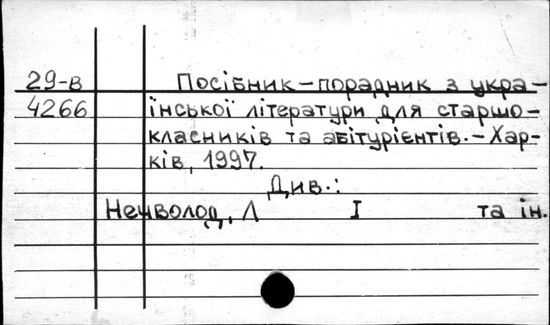 29-в Посібник-порадник з укра-
4266 їнської літератури для старшо-
класників та абітурієнтів.-Хар-
ків, 1997.
Див.:
Нечволод, Л І та ін.